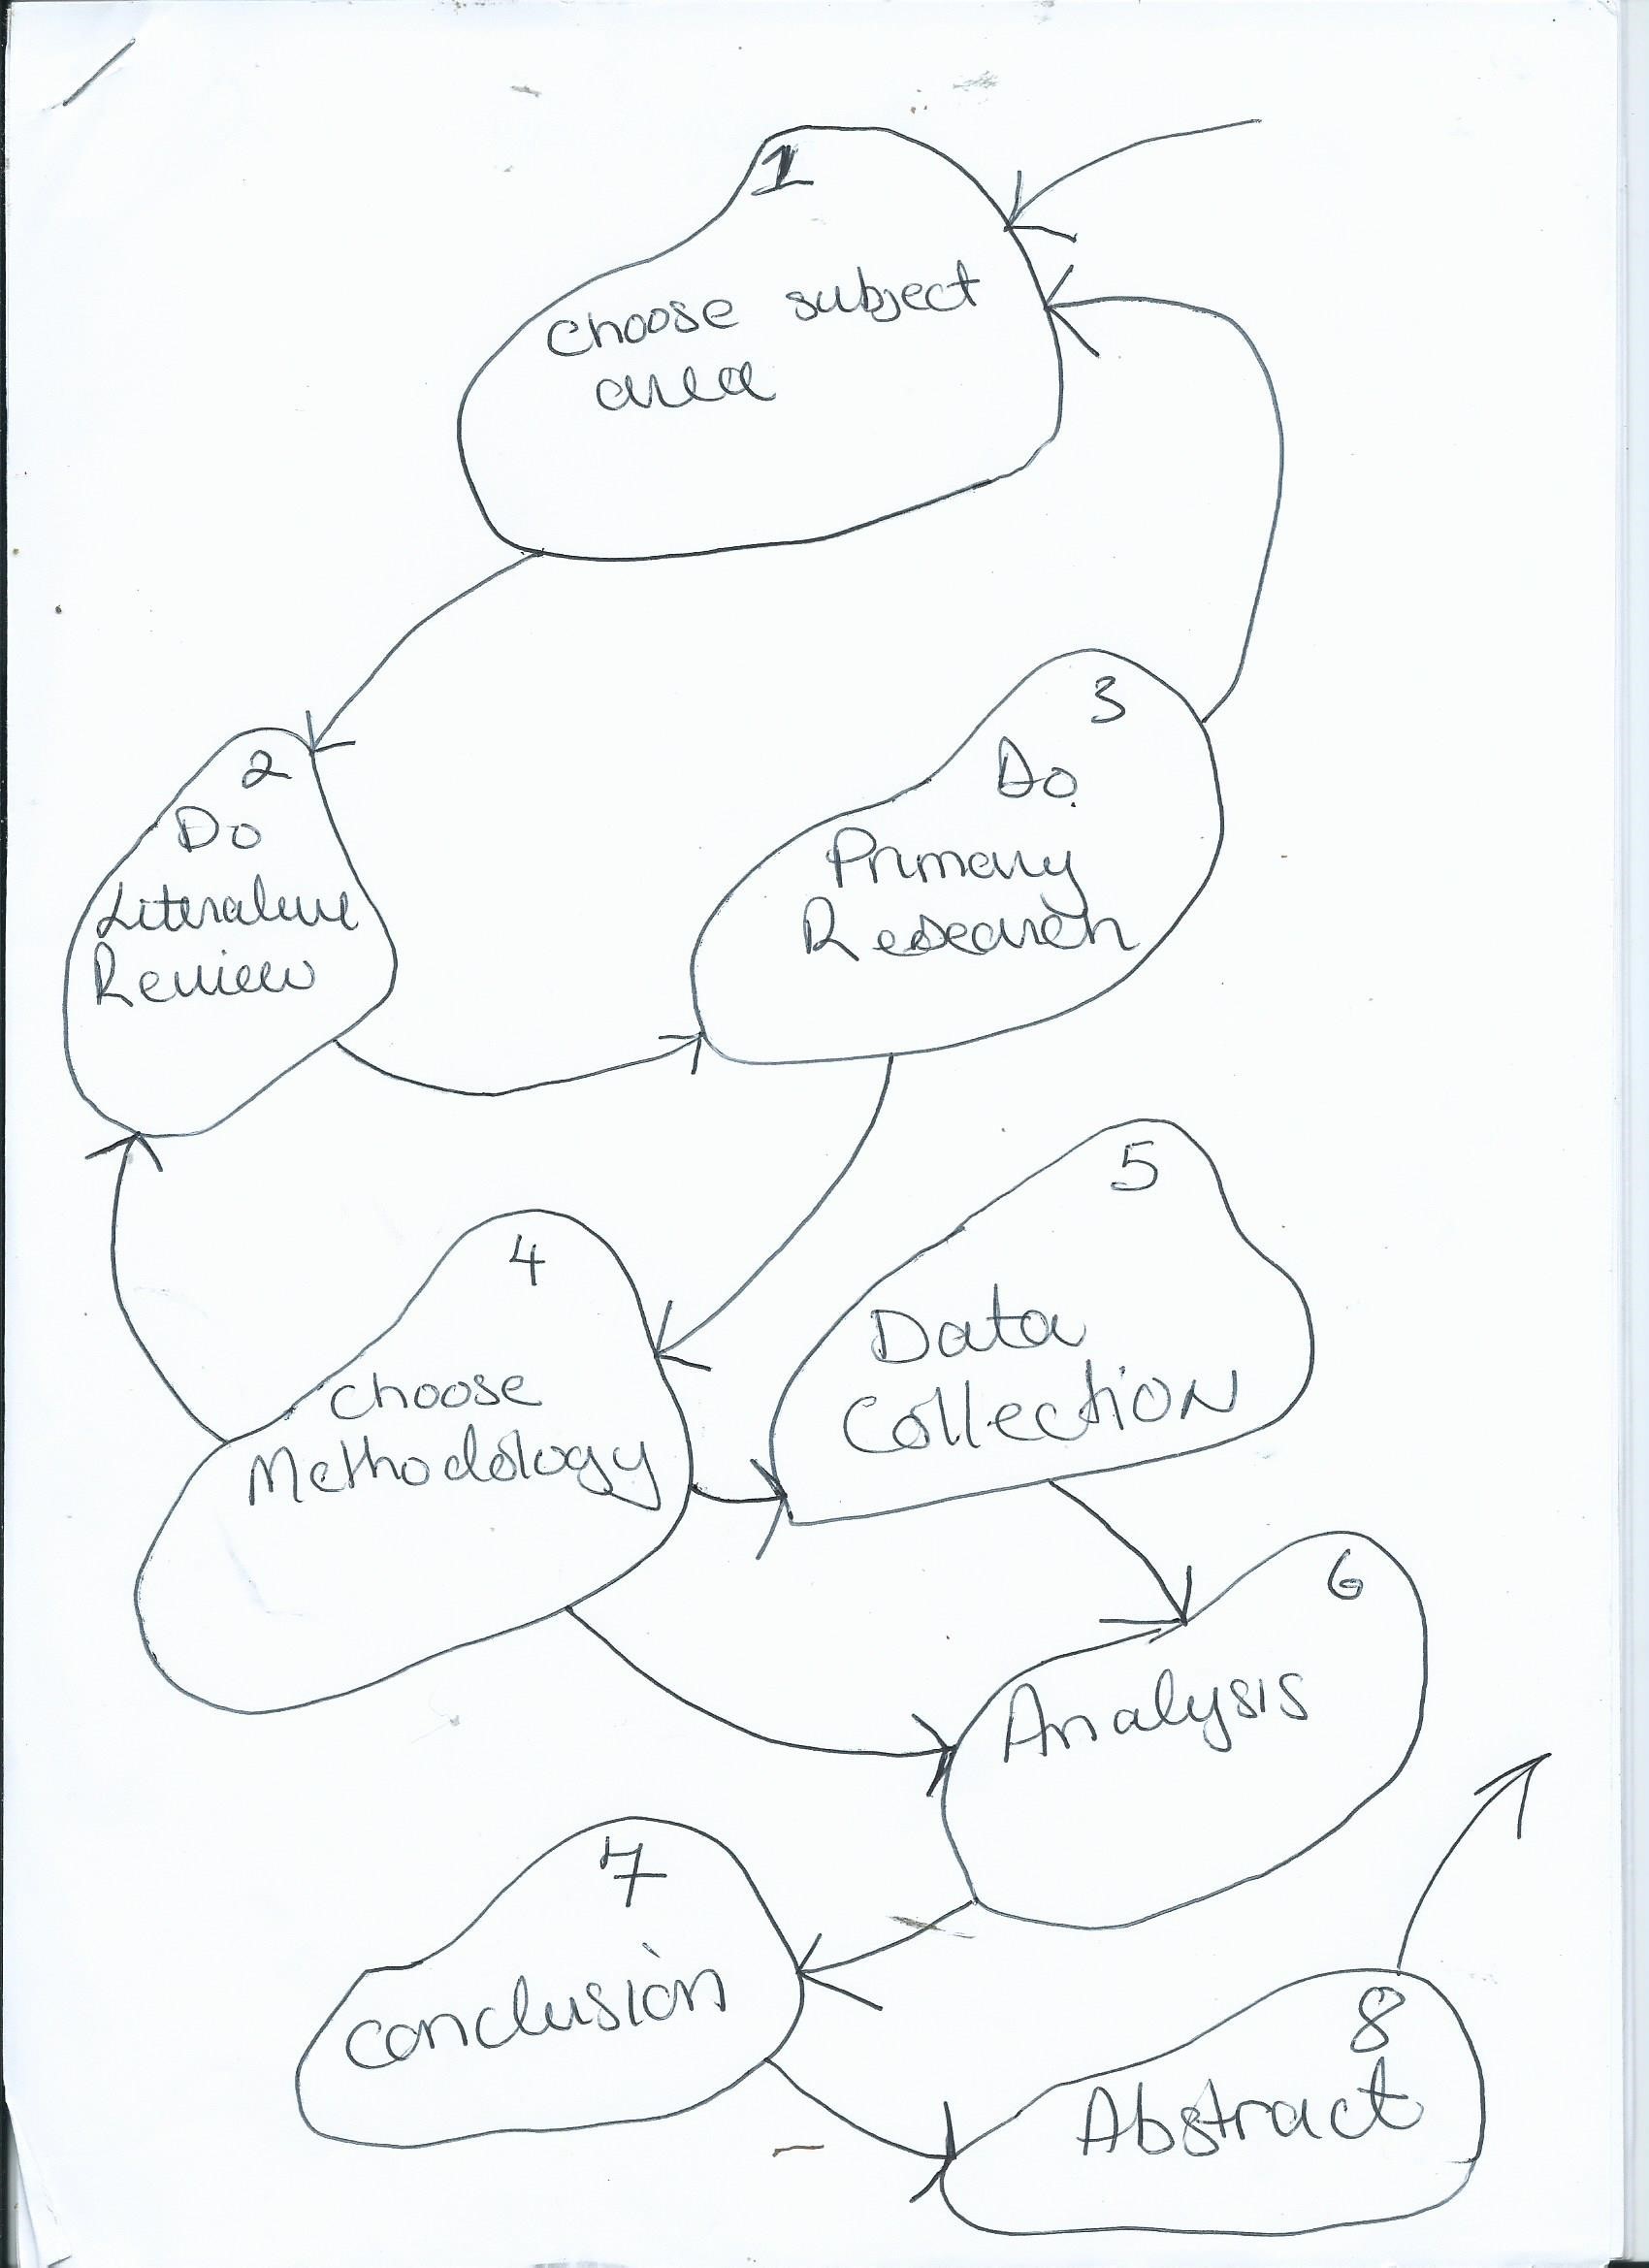 1
Choose subject
area
2
Do
Literature
Review
3
Do
Primary
Research
4
Choose
Methodology
5
Data
Collection
6
Analysis
7
Conclusion
8
Abstract